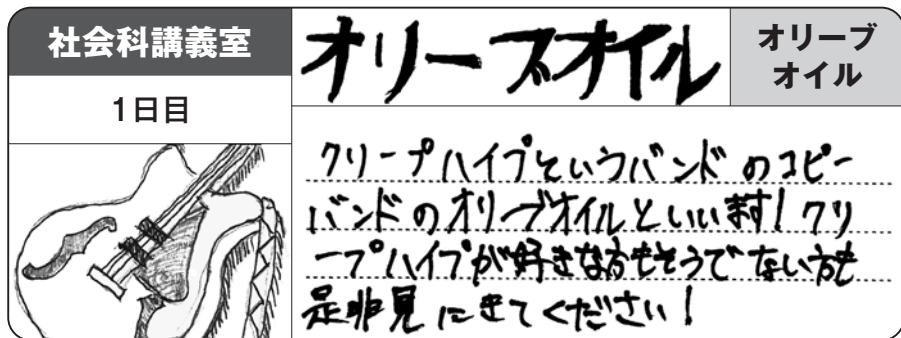 社会科講義室
1日目
オリーブオイル
オリーブ
オイル
クリープハイプというバンドのコピー
バンドのオリーブオイルといいます!クリ
ープハイプが好きな方もそうでない方も
是非見にきてください!